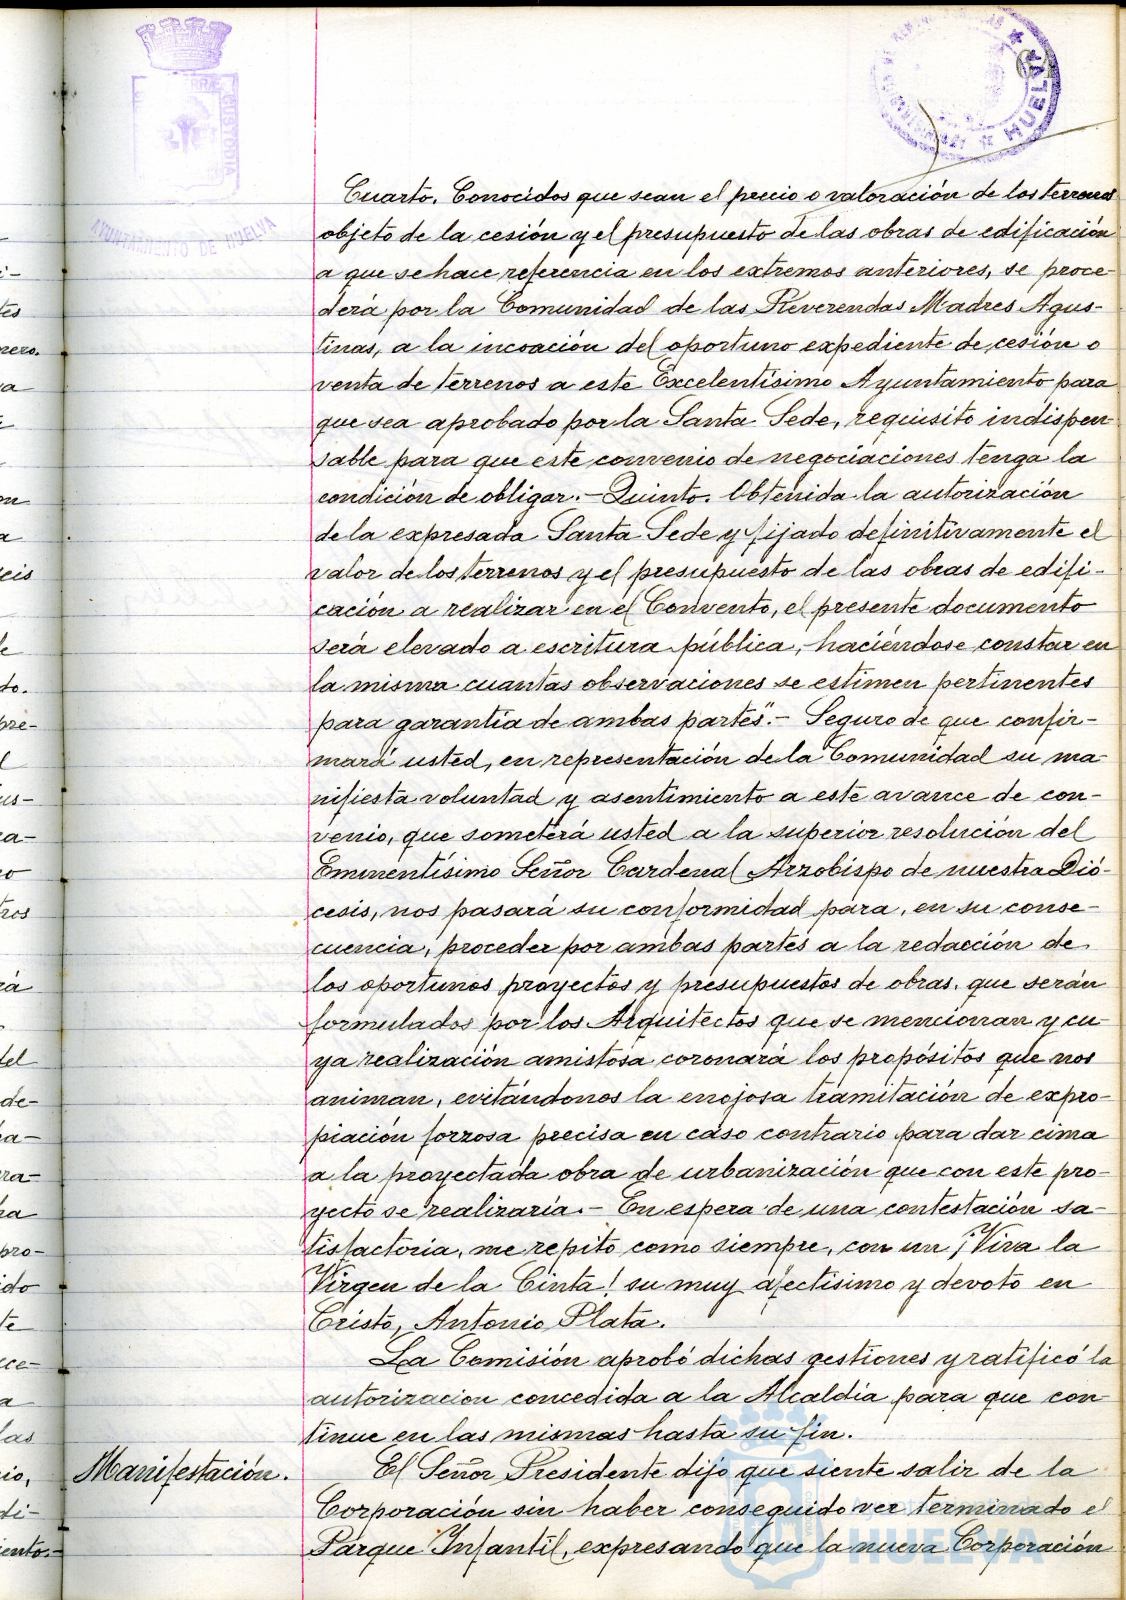 AYUNTAMIENTO DE HUELVA
HUELVA
Cuarto. Conocidos que sean el precio o valoración de los terrenos
objeto de la cesión y el presupuesto de las obras de edificación
a que se hace referencia en los extremos anteriores, se proce-
derá por la Comunidad de las Reverendas Madres Agus-
tinas, a la incoación del oportuno expediente de cesión o
venta de terrenos a este Excelentísimo Ayuntamiento para
que sea aprobado por la Santa Sede, requisito indispen-
sable para que este convenio de negociaciones tenga la
condición de obligar.- Quinto. Obtenida la autorización
de la expresada Santa Sede y fijado definitivamente el
valor de los terrenos y el presupuesto de las obras de edifi-
cación a realizar en el Convento, el presente documento
será elevado a escritura pública, haciéndose constar en
la misma cuantas observaciones se estimen pertinentes
para garantía de ambas partes".- Seguro de que confir-
mará usted, en representación de la Comunidad su ma-
nifiesta voluntad y asentimiento a este avance de con-
venio, que someterá usted a la superior resolución del
Eminentísimo Señor Cardenal Arzobispo de nuestra Dió-
cesis, nos pasará su conformidad para, en su conse-
cuencia, proceder por ambas partes a la redacción de
los oportunos proyectos y presupuestos de obras, que serán
formulados por los Arquitectos que se mencionan y cu-
ya realización amistosa coronará los propósitos que nos
animan, evitándonos la enojosa tramitación de expro-
piación forzosa precisa en caso contrario para dar cima
a la proyectada obra de urbanización que con este pro-
yecto se realizaría.- En espera de una contestación sa-
tisfactoria, me repito como siempre, con un ¡Viva la
Virgen de la Cinta! su muy afectísimo y devoto en
Cristo, Antonio Plata.
La Comisión aprobó dichas gestiones y ratificó la
autorizacion concedida a la Alcaldía para que con-
tinue en las mismas hasta su fin.
Manifestación. El Señor Presidente dijo que siente salir de la
Corporación sin haber conseguido ver terminado el
Parque Infantil, expresando que la nueva Corporación
HUELVA